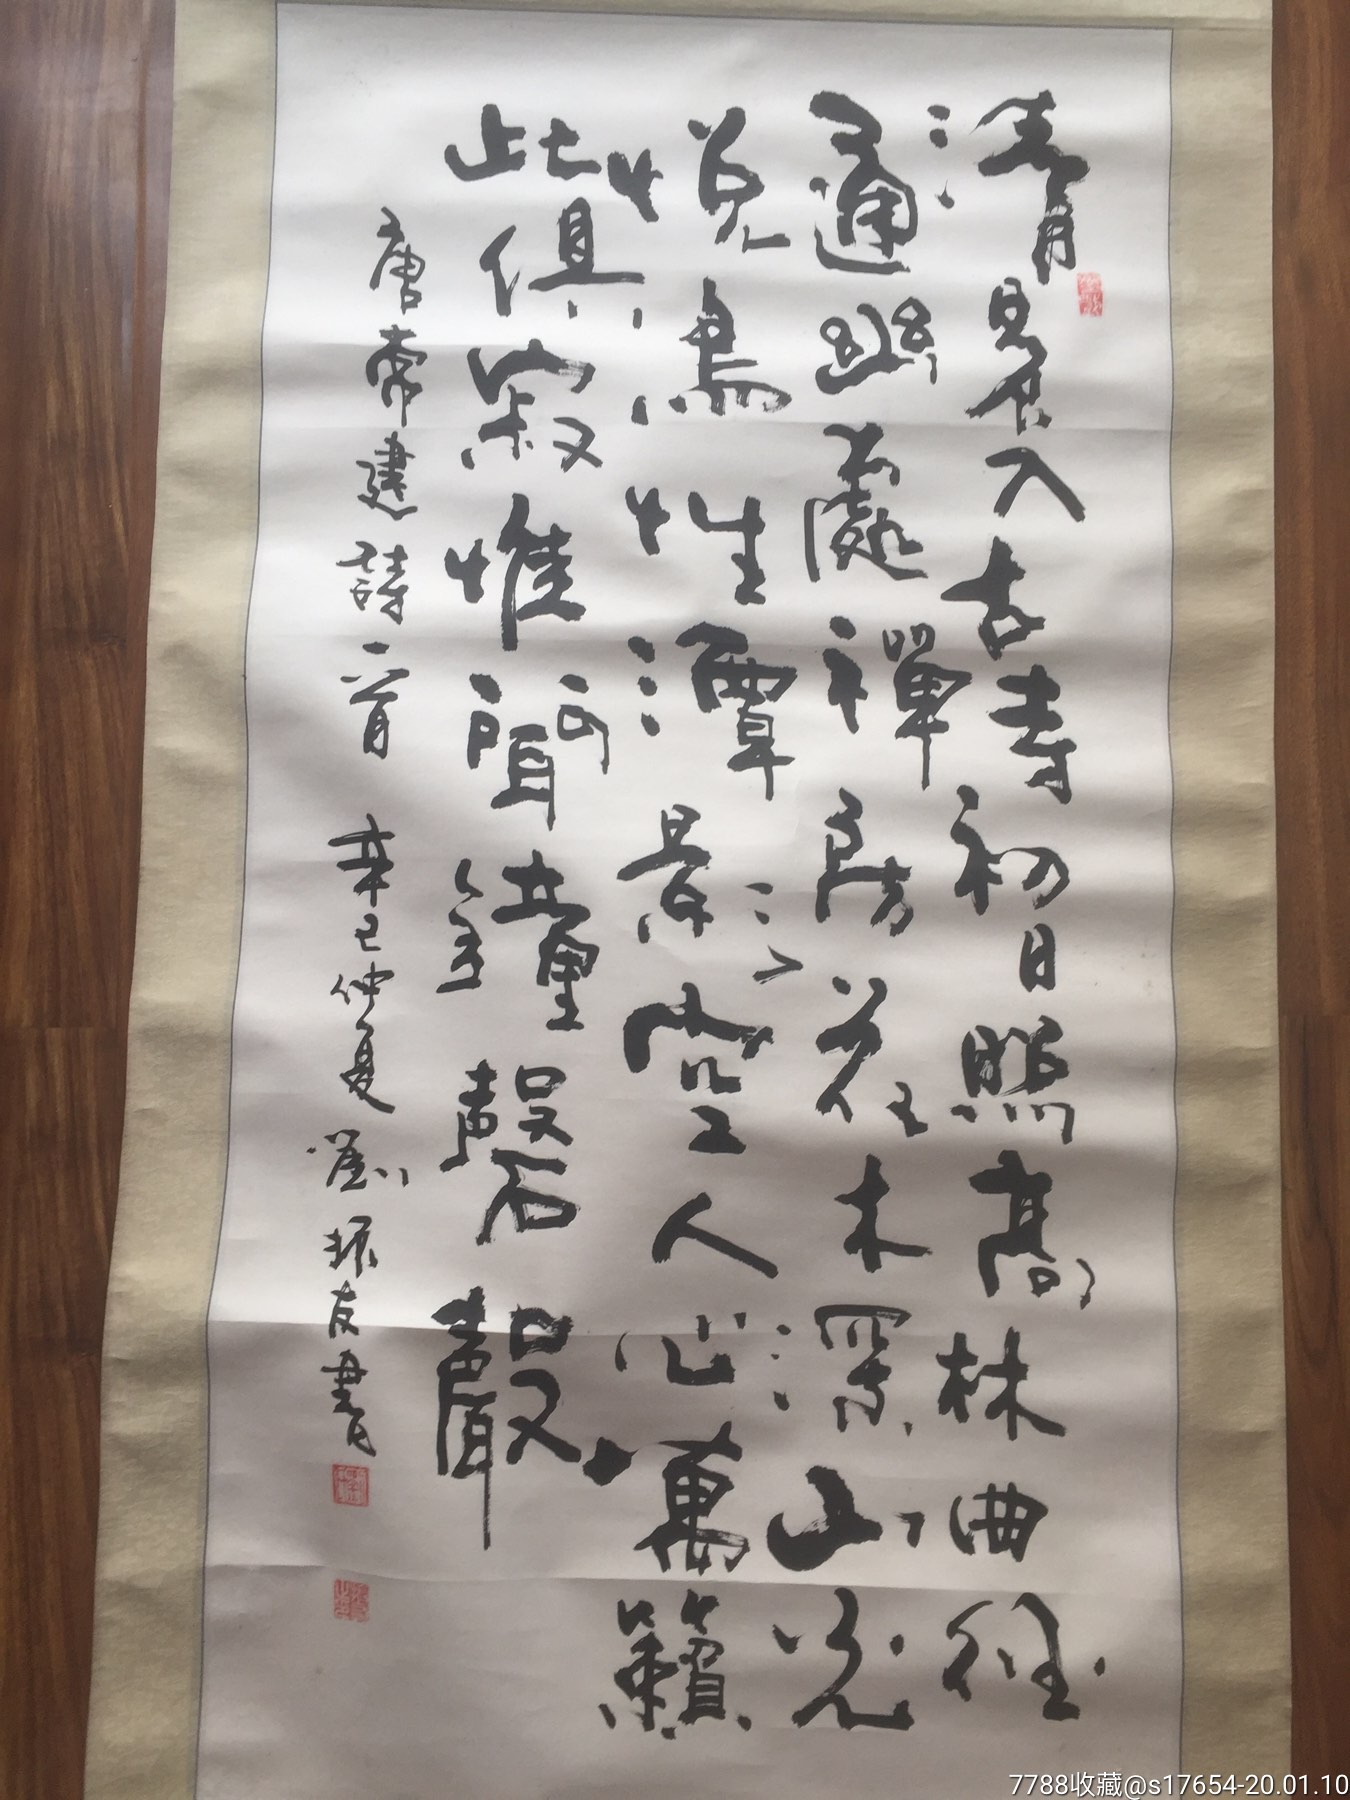 清晨入古寺初日照高林曲徑
通幽處禪房花木深山光
悅鳥性潭影空人心萬籟
此俱寂惟聞鐘磬聲
唐常建詩一首 辛巳仲夏 劉振友書
7788收藏@s17654-20.01.10